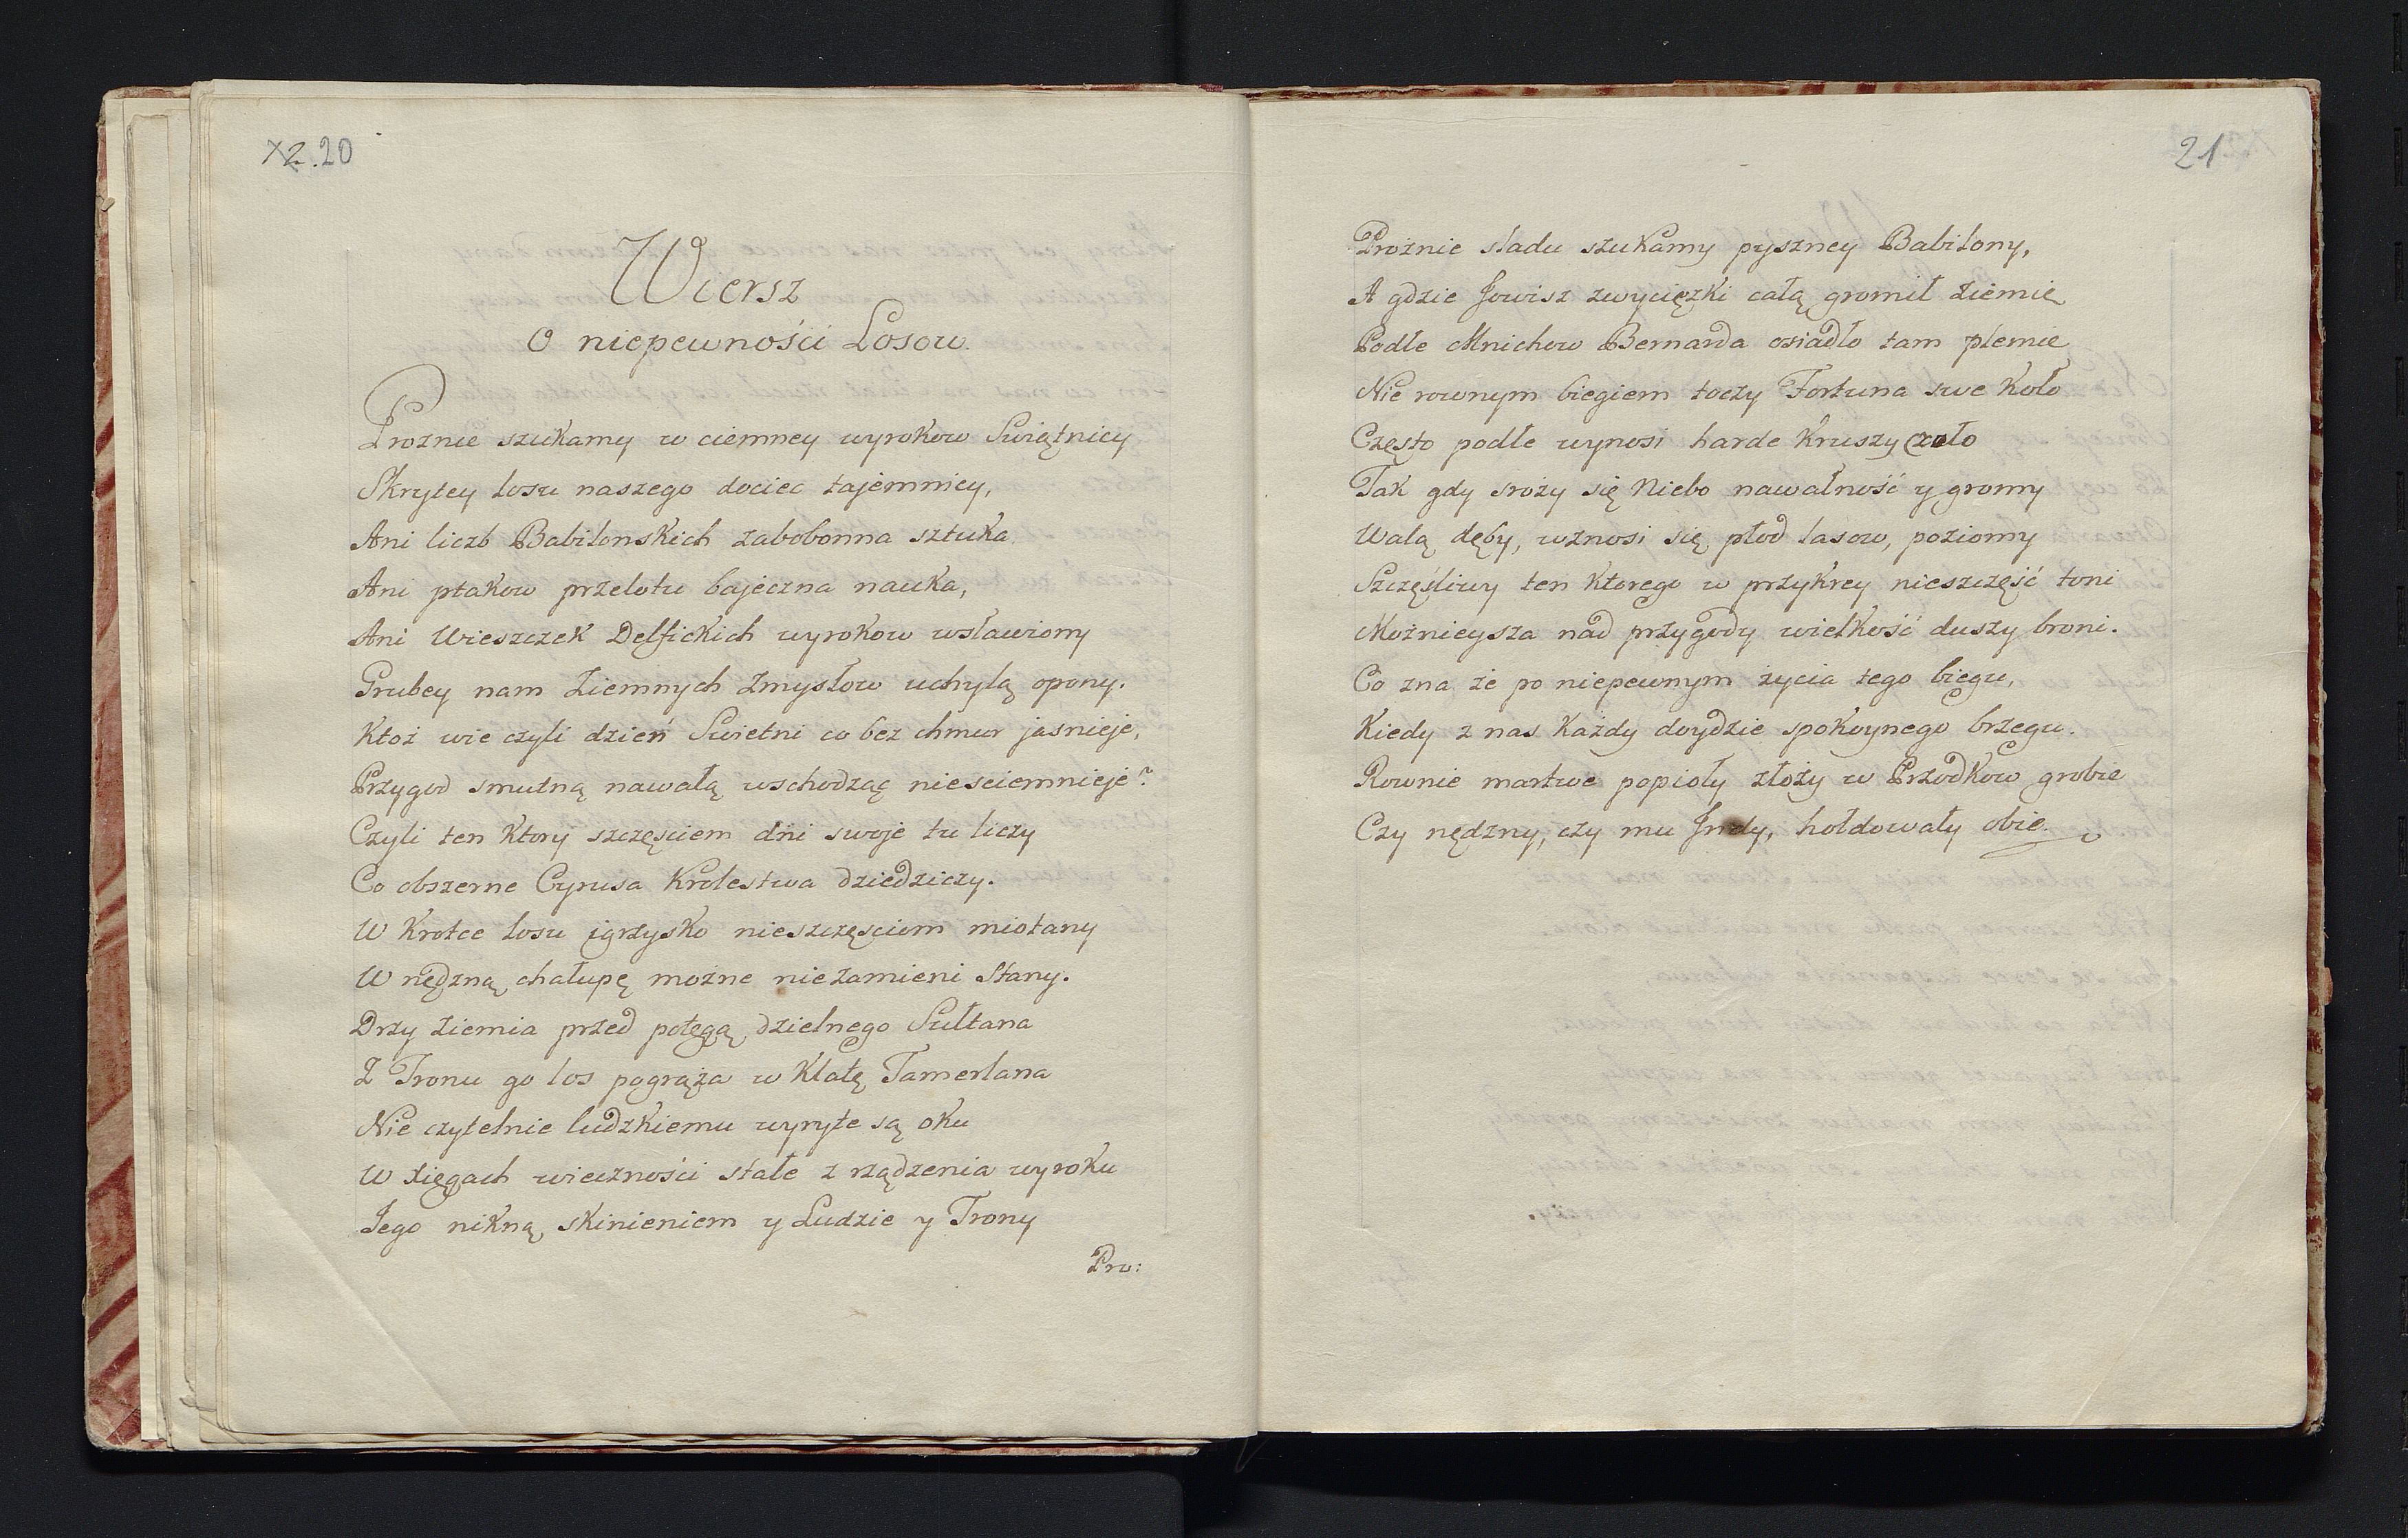 X2.20
Wiersz
O niepewności Losow.
Proznie szukamy w ciemney wyrokow Swiętnicy
Skrytey losu naszego dociec tajemnicy,
Ani liczb Babilonskich zabobonna sztuka
Ani ptakow przelotu bajeczna nauka,
Ani Wieszczek Delfickich wyrokow wsławiony
Grubey nam Ziemnych Zmysłow uchylą opony.
Ktoż wie czyli dzień Swietni co bez chmur jasnieje,
Przygod smutną nawałą wschodząc niesciemnieje?
Czyli ten Ktory szczęsciem dni swoje tu liczy
Co obszerne Cyrusa Krolestwa dziedziczy.
W Krotce losu igrzysko nieszczęsciem miotany
W nędzną chałupę możne niezamieni Stany.
Drzy Ziemia przed potęgą dzielnego Sultana
Z Tronu go los pogrąża w Klatę Tamerlana
Nie czytelnie ludzkiemu wyryte są oku
W Xięgach wieczności stałe z rządzenia wyroku
Jego nikną skinieniem y Ludzie y Trony
Pro:
21
Prożnie sladu szukamy pyszney Babilony,
A gdzie Jowisz zwycięzki całą gromił Ziemię
Podłe Mnichow Bernarda osiadło tam plemie
Nie rownym biegiem toczy Fortuna swe Koło
Często podłe wynosi harde Kruszy czoło
Tak gdy sroży się Niebo nawałność y gromy
Walą dęby, wznosi się płod lasow, poziomy
Szczęśliwy ten Ktorego w przykrey nieszczęść toni
Możnieysza nad przygody wielkość duszy broni.
Co zna że po niepewnym życia tego biegu,
Kiedy z nas Każdy doydzie spokoynego brzegu.
Rownie martwe popioły złoży w Przodkow grobie
Czy nędzny, czy mu Jndy, hołdowały obie.